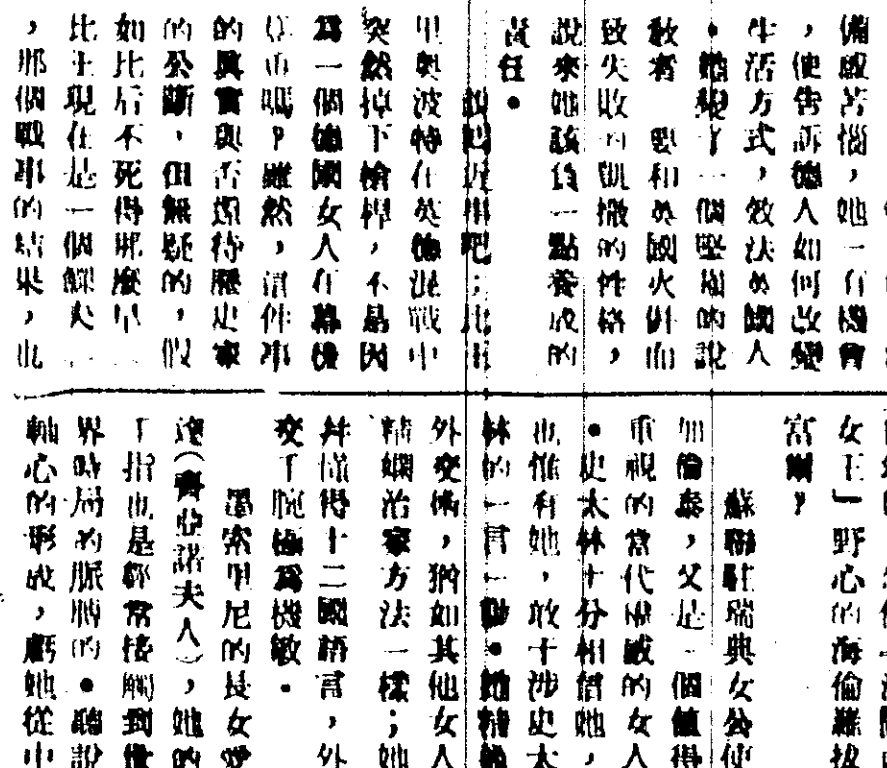 備感苦惱,她一有機會
,便告訴德人如何改變
生活方式,效法英國人
•她 了一個堅强的說
敎者 要和英國火併而
致失敗的凱撒的性格,
說來她該負一點養成的
責任•
近世吧;比王
里奧波特在英德混戰中
突然掉下槍桿,不是因
爲一個德國女人在幕後
嗎?雖然,這件事
的眞實與否須待歷史家
的公斷,但無疑的,假
如比后不死得那麽早
比王現在是一個鰥夫
,那個戰事的結果,也
女王」野心的海倫羅拔
富爾?
蘇聯駐瑞典女公使
加倫泰,又是一個値得
重視的當代權威的女人
•史太林十分相信她,
也惟有她,敢干涉史太
林的一言一動•她精通
外交術,猶如其他女人
精嫻治家方法一樣;她
幷懂得十二國語言,外
交手腕極爲機敏•
墨索里尼的長女愛
達(齊亞諾夫人),她的
手指也是經常接觸到世
界時局的脈膊的•聽說
軸心的形成,虧她從中